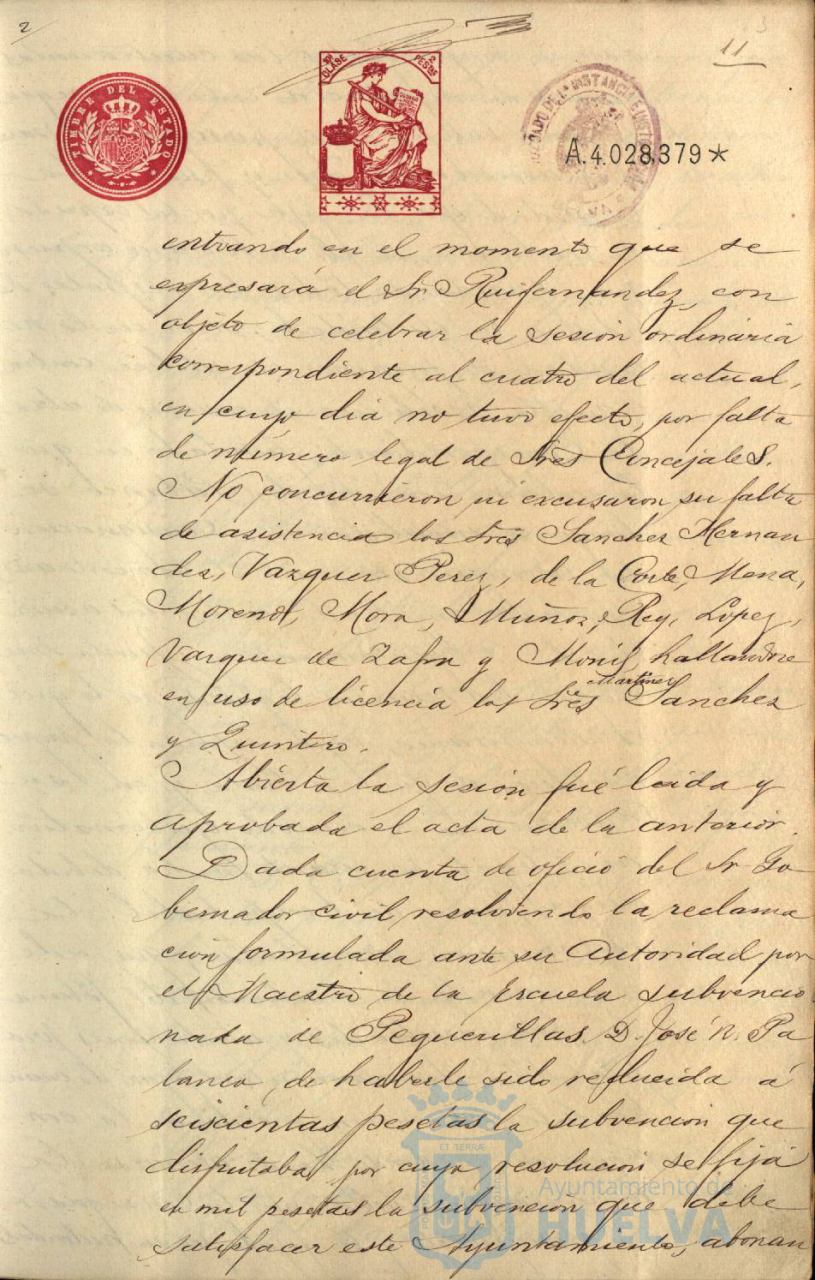 2
11
3
TIMBRE DEL ESTADO
10ª CLASE
2 PESETAS
JUZGADO DE 1ª INSTANCIA E INSTRUCCION
HUELVA
A.4.028,379*
entrando en el momento que se
expresará el Sr Ruifernandez, con
objeto de celebrar la sesion ordinaria
correspondiente al cuatro del actual,
en cuyo dia no tuvo efecto, por falta
de número legal de Sres Concejales.
No concurrieron ni excusaron su falta
de asistencia los Sres Sanchez Hernan
dez, Vazquez Perez, de la Corte, Mena,
Moreno, Mora, Muñoz, Rey, Lopez,
Vazquez de Zafra y Monis, hallandose
en uso de licencia los Sres Martinez Sanchez
y Quintero.
Abierta la sesión fué leida y
aprobada el acta de la anterior.
Dada cuenta de oficio del Sr Go
bernador civil, resolviendo la reclama
ción formulada ante su Autoridad por
el Maestro de la Escuela subvencio
nada de Peguerillas D. José N. Pa
lanco, de haberle sido reducida á
seiscientas pesetas la subvencion que
disfrutaba, por cuya resolucion se fija
en mil pesetas la subvención que debe
satisfacer este Ayuntamiento, abonan
ET TERRAE
Ayuntamiento de
HUELVA